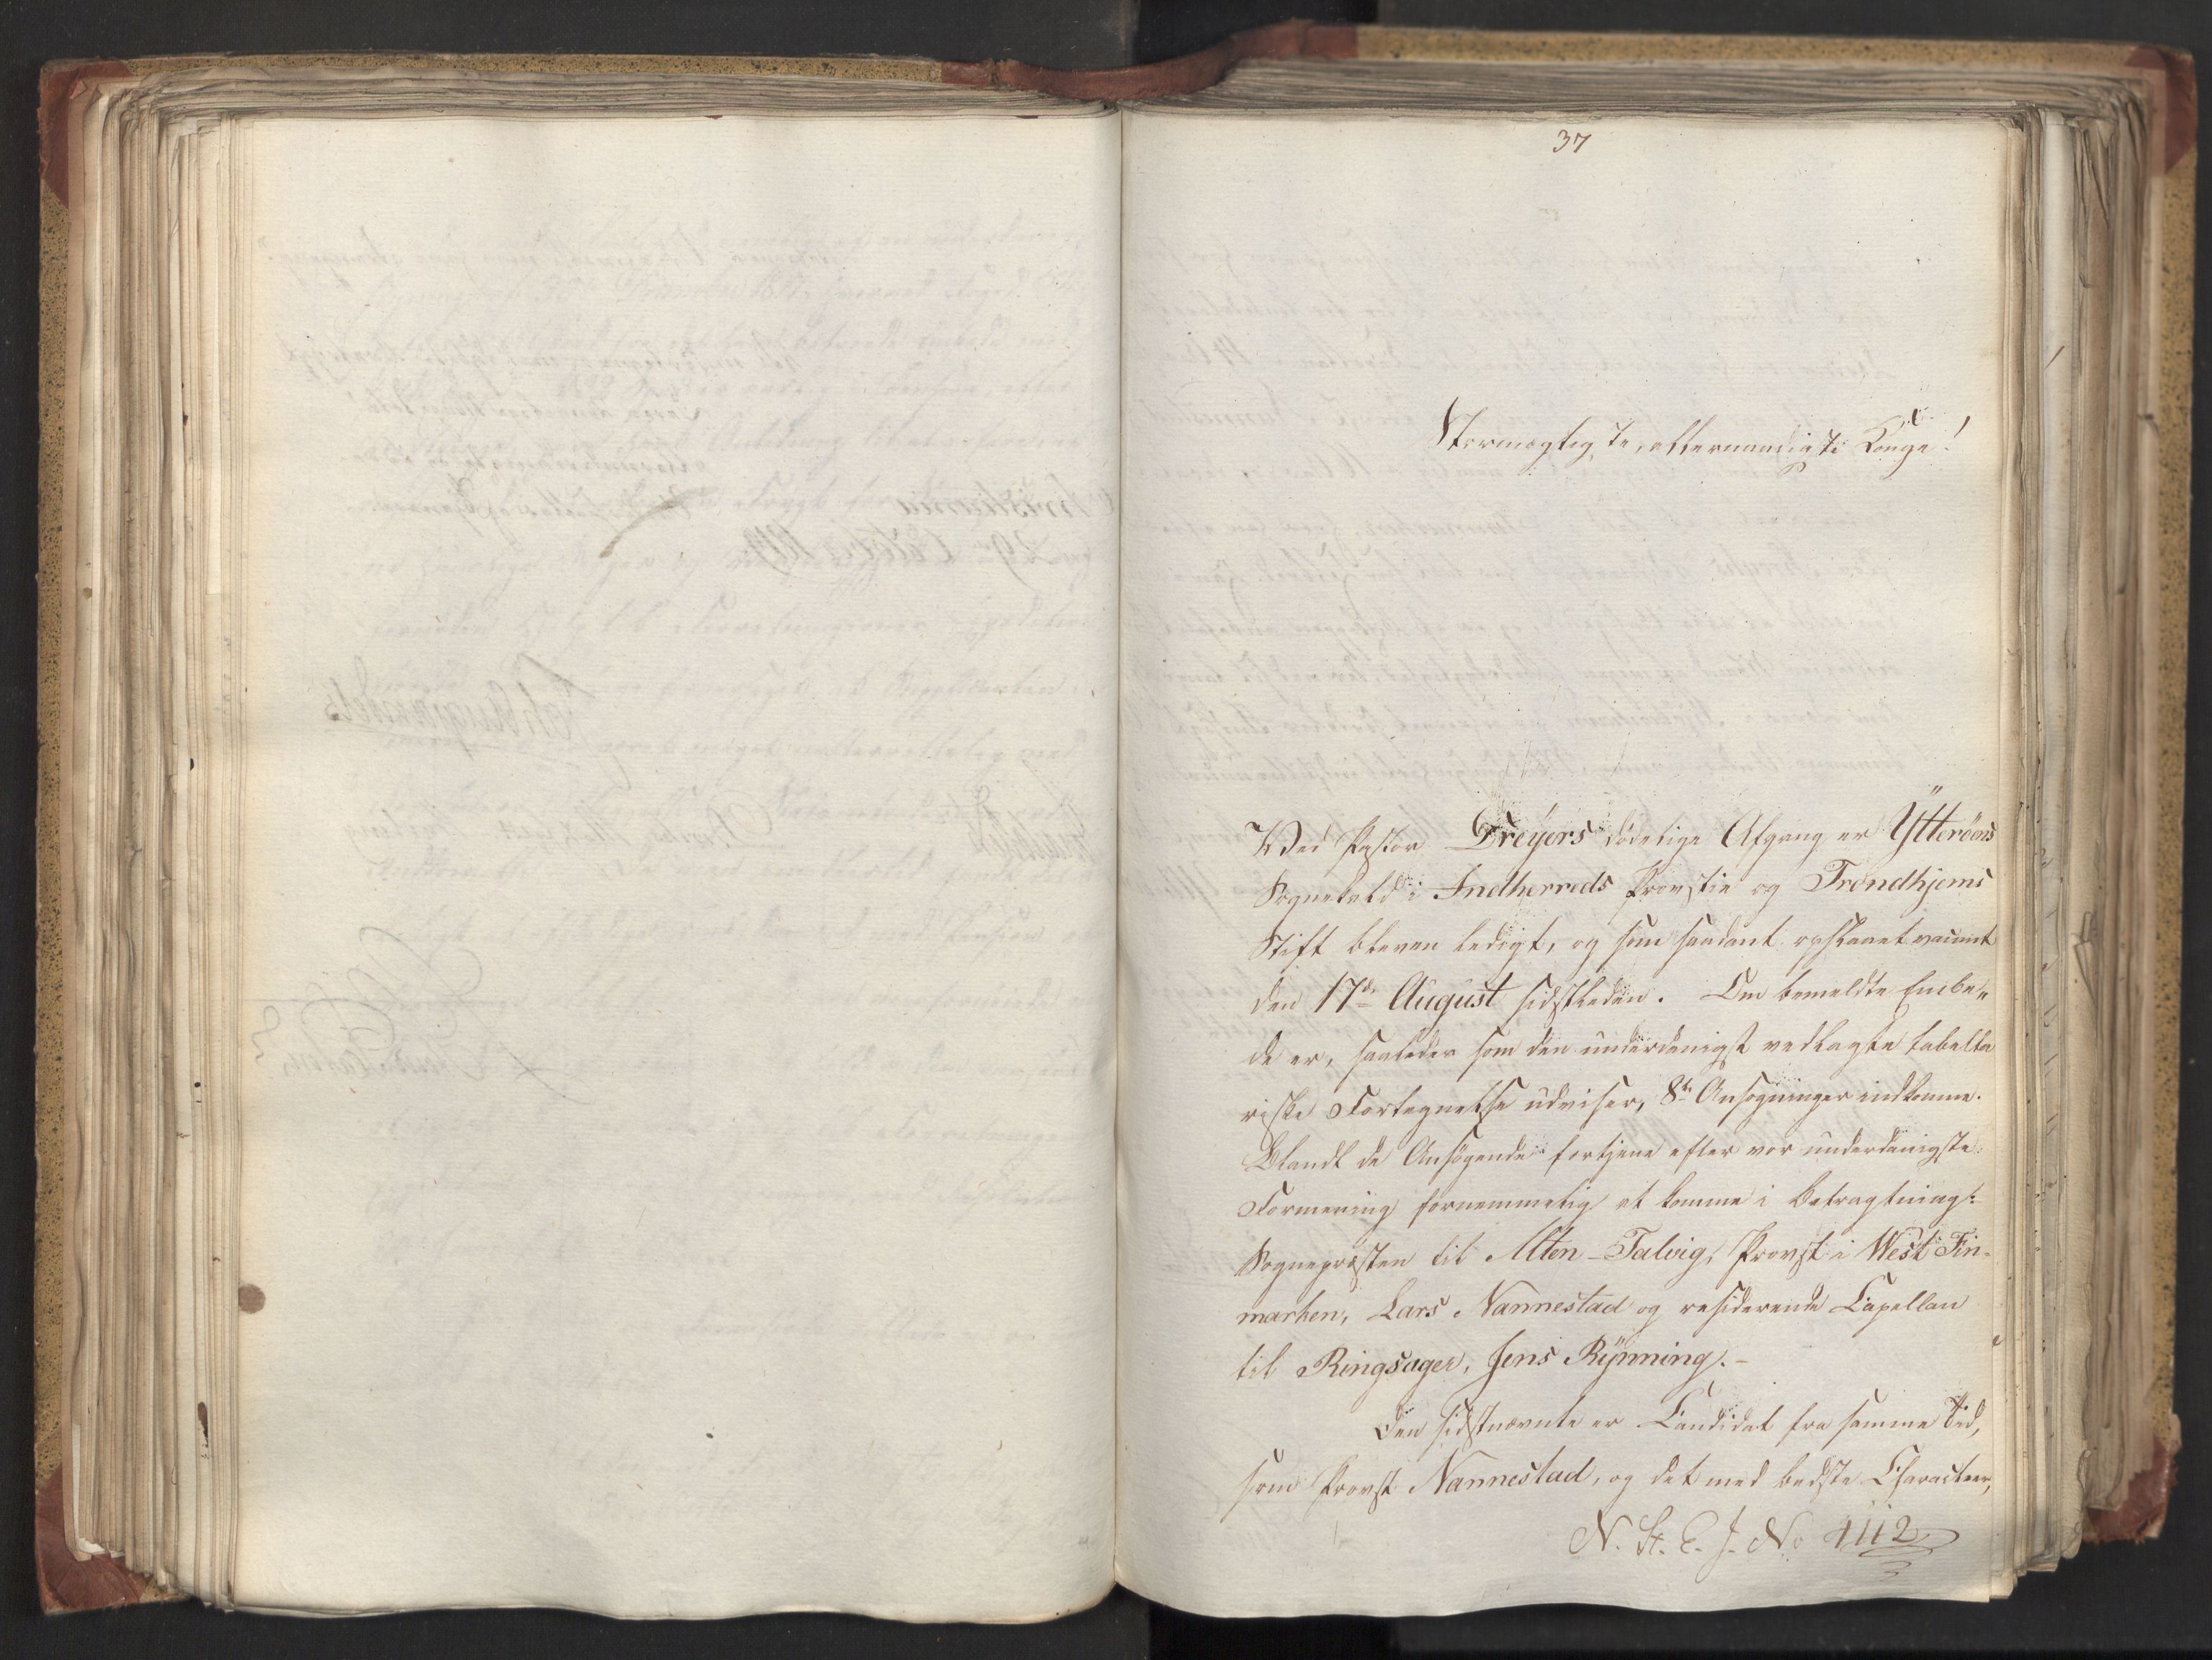 37
Stormægtigste, allernaadigste Konge!
Ved Pastor Dreyers dödelige Afgang er Ÿtteröens
Sognekald i Indherreds Provstie og Trondhjems
Stift bleven ledigt, og som saadant opslaaet vacant
den 17de August sidstleden. Om bemeldte Embe„
de er, saaledes som den underdanigst vedlagte tabella
riske Fortegnelse udviser, 8te Ansøgninger indkomne.
Blandt de Ansøgende fortjene efter vor underdanigste
Formening fornemmelig at komme i Betragtning:
Sognepræsten til Alten-Talvig, Provst i West Fin-
marken, Lars Nannestad og residerende Capellan
til Ringsager, Jens Rÿnning.-
Den sidstnævnte er Candidat fra samme Tid,
som Provst Nannestad, og det med bedste Characteer,
N. St. E. J. No 4112